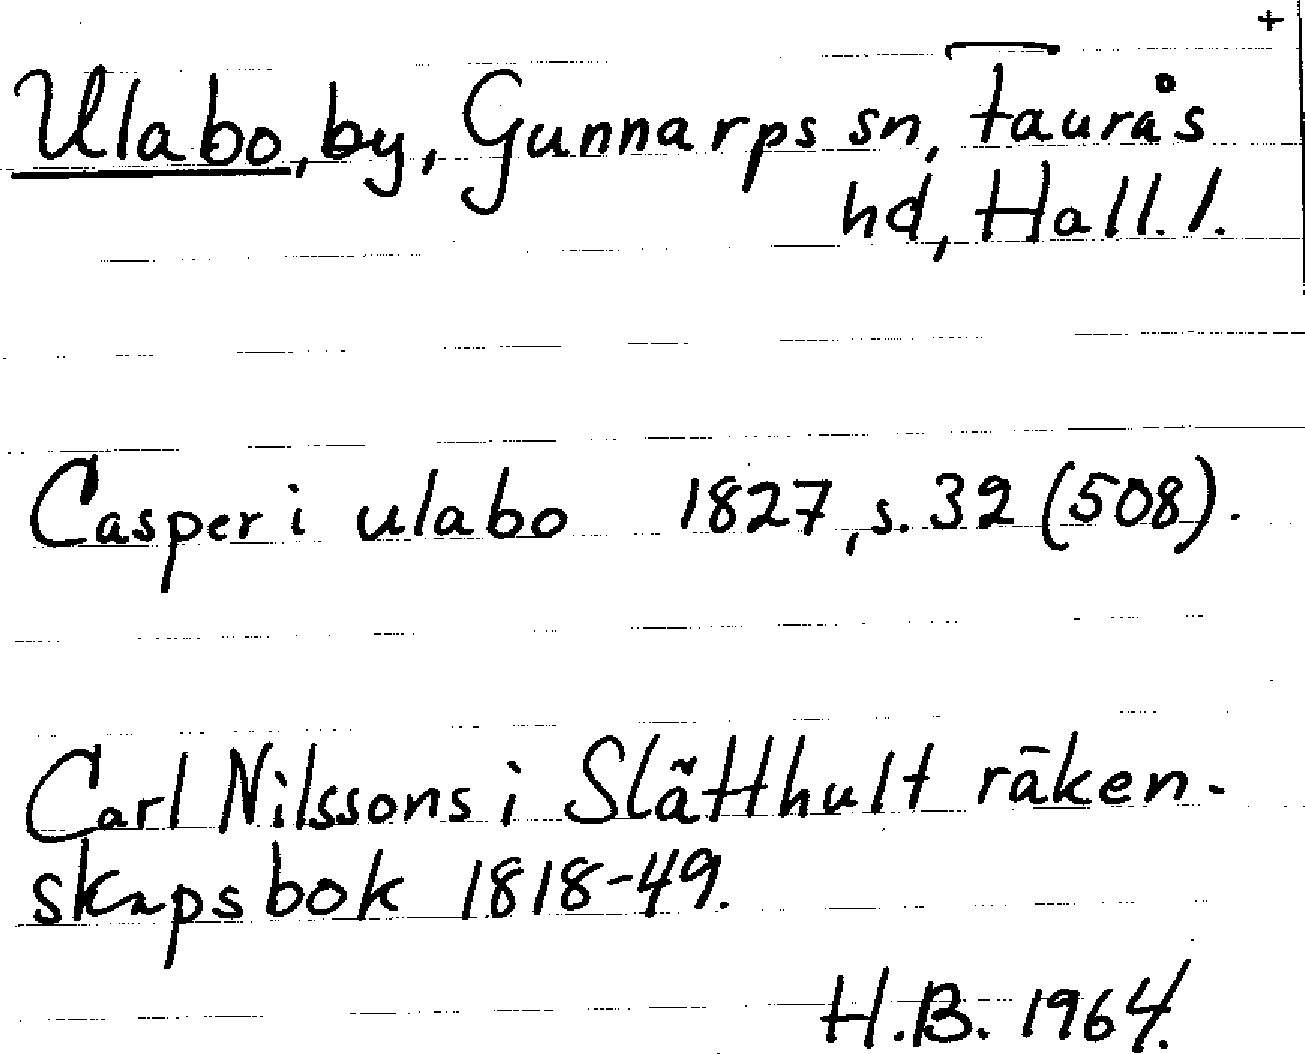 +
Ulabo, by, Gunnarps sn, Faurås
hd, Hall. l.
Casper i ulabo 1827, s. 32 (508).
Carl Nilssons i Slätthult räken-
skapsbok 1818-49.
H.B. 1964.